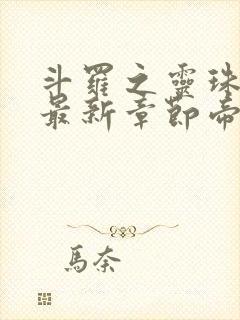 斗羅之靈珠
最新章節帝
馬奈